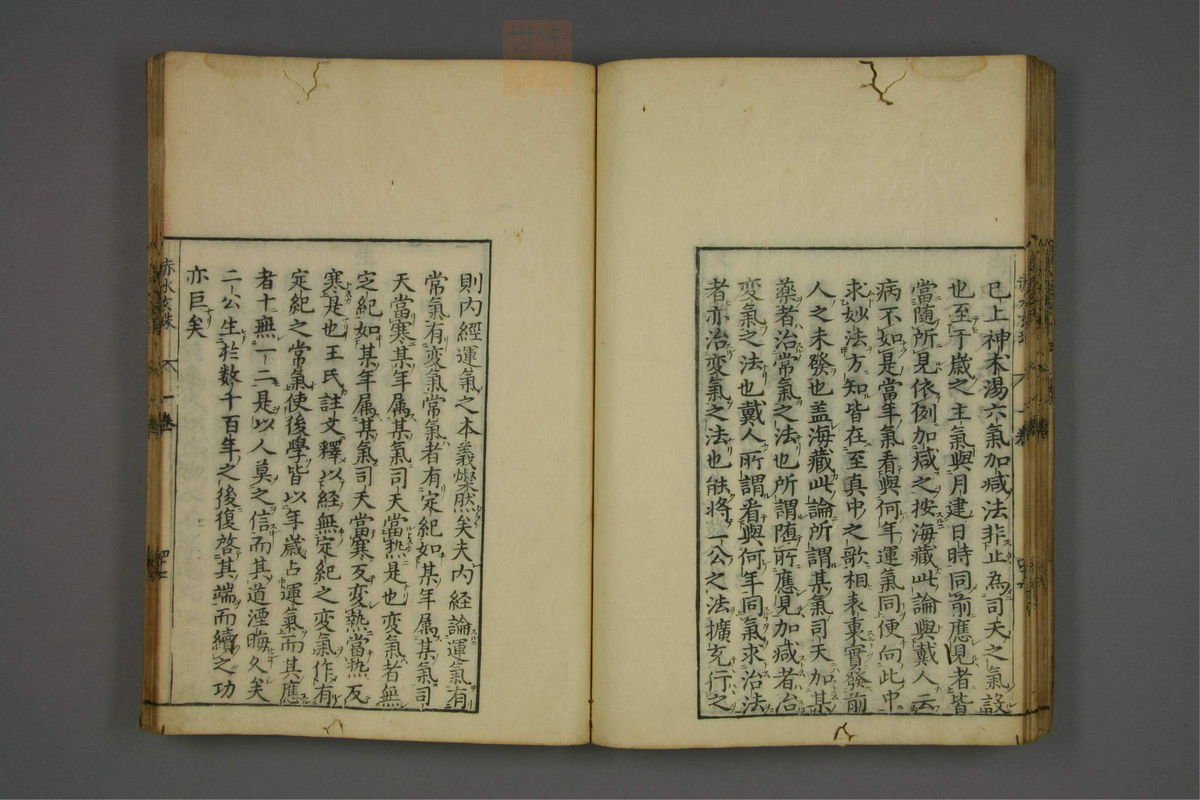 已上神朮湯六氣加减法非止為司天之氣設
也至于歲之主氣與月建日時同前應見者皆
當随所見依例加减之按海藏此論與戴人云
病不如是當年氣看與何年運氣同便向此中
求妙法方知皆在至真中之歌相表裏實發前
人之未發也盖海藏此論所謂某氣司天加某
藥者治常氣之法也所謂随所應見加减者治
變氣之法也戴人所謂看與何年同氣求治法
者亦治變氣之法也能將二公之法擴充行之
則内經運氣之本義燦然矣夫内經論運氣有
常氣有変氣常氣者有定紀如某年属某氣司
天當寒某年属某氣司天當熱是也変氣者無
定紀如某年属某氣司天當寒反変熱當热反
寒是也王氏註文釋以経無定紀之変氣作有
定紀之常氣使後學皆以年歲占運氣而其應
者十無一二是以人莫之信而其道湮晦久矣
二公生於数千百年之後復啓其端而續之功
亦巨矣
赤水玄珠
一卷